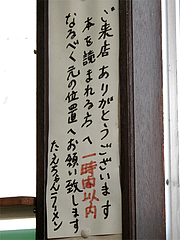 ご来店 ありがとうございます
本を読まれる方へ 一時間以内
なるべく元の位置へお願い致します
たえちゃんラーメン